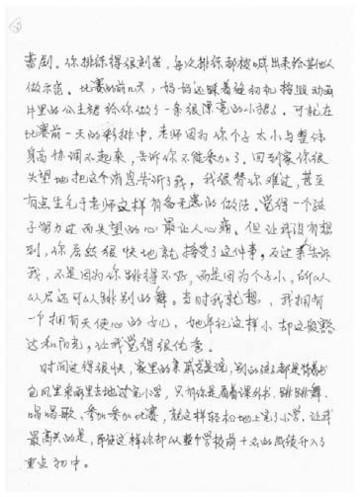 喜剧。你排练得很刻苦,每次排练都被叫出来给其他人
做示范。比赛的前几天,妈妈还踩着缝纫机按照动画
片里的公主裙给你做了一条很漂亮的小裙子。可就在
比赛前一天的彩排中,老师因为你个子太小与整体
身高协调不起来,告诉你不能参加了。回到家你很
失望地把这个消息告诉了我,我很替你难过,甚至
有点生气于老师这样有备无患的做法。觉得一个孩
子努力过而失望的心最让人心痛。但让我没有想
到,你居然很快地就接受了这件事。反过来告诉
我,不是因为你跳得不好,而是因为个子小,所以
以后还可以跳别的舞。当时我就想,我拥有
一个拥有天使心的女儿,她年纪这样小却这般豁
达和阳光,让我觉得很优秀。
时间过得很快,家里的亲戚总是说,别的孩子都是背着书
包风里来雨里去地过完小学,只有你是看看课外书、跳跳舞、
唱唱歌、参加参加比赛,就这样轻松地上完了小学。让我
最高兴的是,即使这样你却以整个学校前十名的成绩升入了
重点初中。